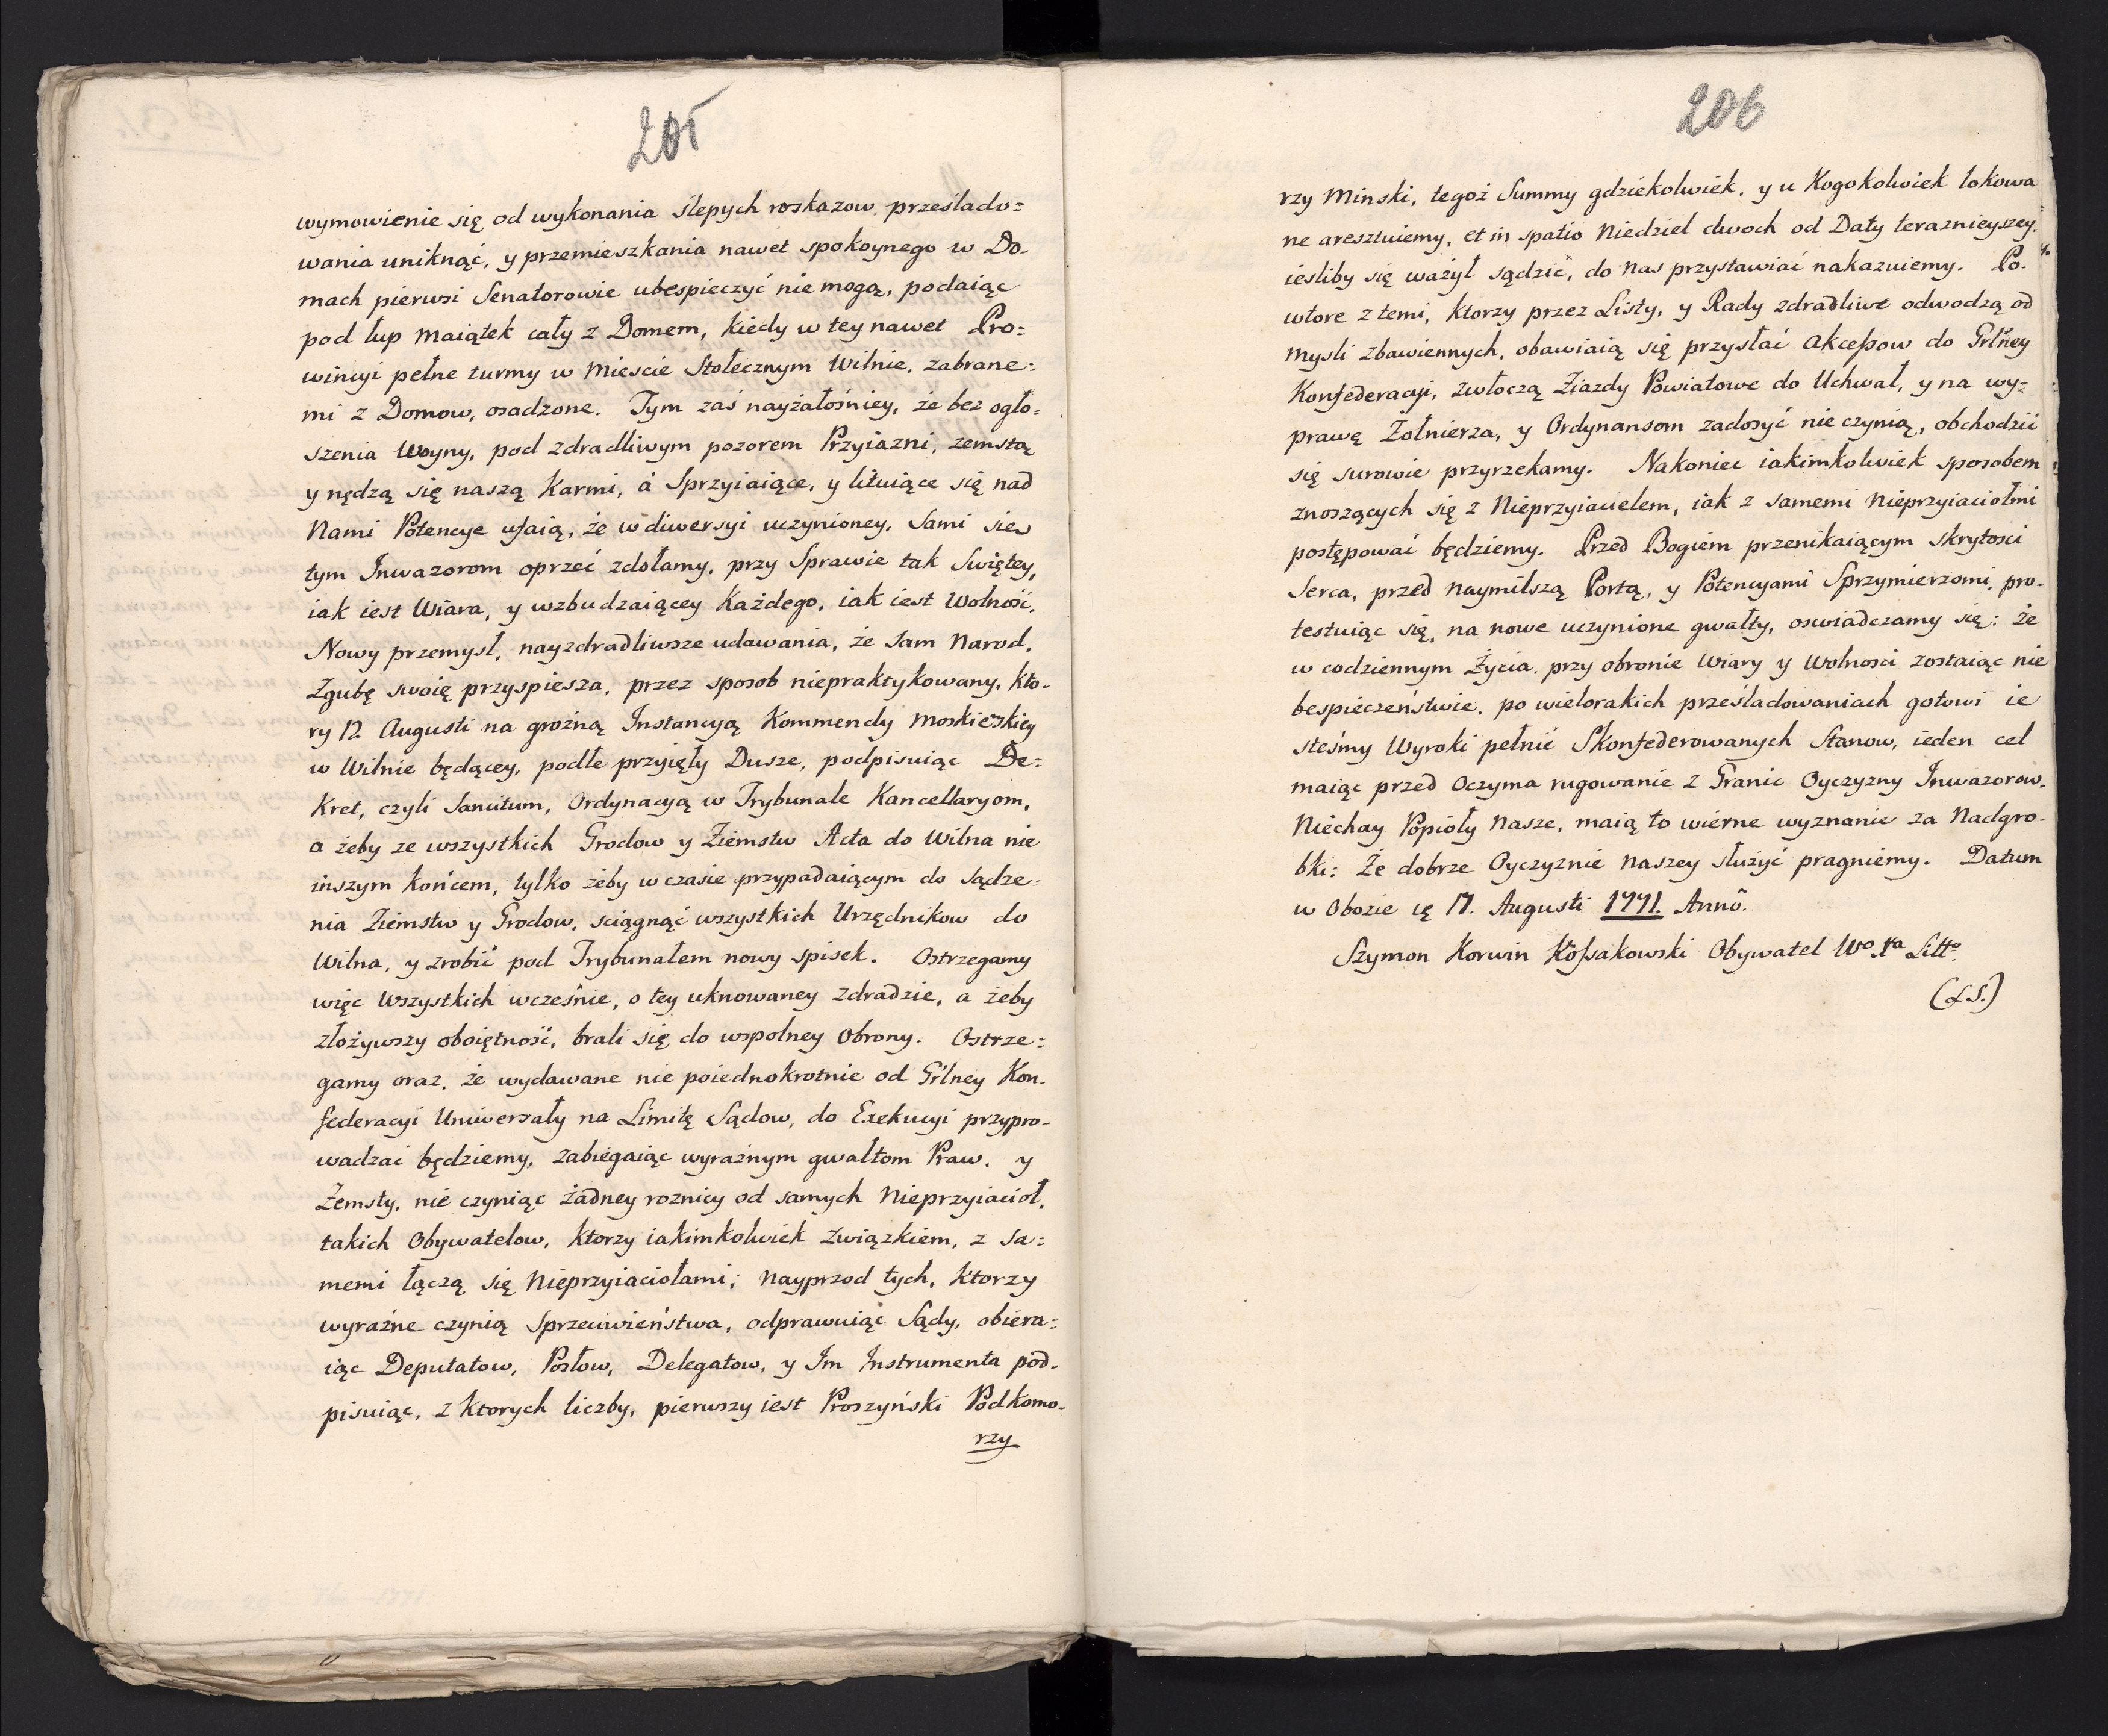 205
wymowienie się od wykonania ślepych roskazow, prześlado=
wania uniknąć, y przemieszkania nawet spokoynego w Do-
mach pierwsi Senatorowie ubespieczyć nie mogą, podaiąc
pod łup Maiątek cały z Domem, kiedy w tey nawet Pro=
wincyi pełne turmy w Mieście Stołecznym Wilnie, zabrane=
mi z Domow, osadzone. Tym zaś nayżałośniey, że bez ogło=
szenia Woyny, pod zdradliwym pozorem Przyiazni, zemstą
y nędzą się naszą karmi, á Sprzyiaiące, y lituiące się nad
Nami Potencye ufaią, że w diwersyi uczynioney, Sami sie
tym Inwazorom oprzeć zdołamy, przy Sprawie tak Swiętey,
iak iest Wiara, y wzbudzaiącey Każdego, iak iest Wolność.
Nowy przemysł, nayzdradliwsze udawania, że sam Narod,
Zgubę swoię przyspiesza, przez sposob niepraktykowany, kto-
ry 12 Augusti na groźną Instancyą Kommendy Moskiewskiey
w Wilnie będącey, podłe przyięły Dusze, podpisuiąc De=
kret, czyli Sancitum, Ordynacyą w Trybunale Kancellaryom,
a żeby ze wszystkich Grodow y Ziemstw Acta do Wilna nie
inszym końcem, tylko żeby w czasie przypadaiącym do Sądze=
nia Ziemstw y Grodow, sciągnąć wszystkich Urzędnikow do
Wilna, y zrobić pod Trybunałem nowy spisek. Ostrzegamy
więc Wszystkich wcześnie, o tey uknowaney Zdradzie, a żeby
złożywszy oboiętność, brali się do wspolney Obrony. Ostrze=
gamy oraz, że wydawane nie poiednokrotnie od Grlney Kon-
federacyi Uniwersały na Limitę Sądow, do Exekucyi przypro-
wadzać będziemy, Zabiegaiąc wyraźnym gwałtom Praw, y
Zemsty, nie czyniąc żadney roznicy od samych Nieprzyiacioł,
takich Obywatelow, ktorzy iakimkolwiek Związkiem, z Sa=
memi łączą się Nieprzyiaciołami; Nayprzod tych, ktorzy
wyraźne czynią Sprzeciwieństwa, odprawuiąc Sądy, obiera=
iąc Deputatow, Posłow, Delegatow, y Im Instrumenta pod-
pisuiąc, z ktorych liczby, pierwszy iest Proszyński Podkomo-
rzy
206
rzy Minski, tegoż Summy gdziekolwiek, y u Kogokolwiek lokowa
ne aresztuiemy, et in spatio Niedziel dwoch od Daty teraznieyszey,
iesliby się ważył sądzić, do Nas przystawiać nakazuiemy. Po-
wtore z temi, ktorzy przez Listy, y Rady zdradliwe odwodzą od
Mysli zbawiennych, obawiaią się przysłać Akcessow do Grlney
Konfederacyi, zwłoczą Ziazdy Powiatowe do Uchwał, y na wy=
prawę Żołnierza, y Ordynansom zadosyć nie czynią, obchodzić
się surowie przyrzekamy. Nakoniec iakimkolwiek sposobem
znoszących się z Nieprzyiacielem, iak z samemi Nieprzyiaciołmi
postępować będziemy. Przed Bogiem przenikaiącym Skrytosci
Serca, przed Naymilszą Portą, y Potencyami Sprzymierzomi, pro-
testuiąc się, na nowe uczynione gwałty, oswiadczamy się: że
w codziennym Życia, przy obronie Wiary y Wolnosci zostaiąc nie
bespieczeństwie, po wielorakich prześladowaniach gotowi ie
steśmy Wyroki pełnić Skonfederowanych Stanow, ieden cel
maiąc przed Oczyma rugowanie z Granic Oyczyzny Inwazorow.
Niechay Popioły Nasze, maią to wierne wyznanie za Nadgro-
bki: Że dobrze Oyczyznie Naszey służyć pragniemy. Datum
w Obozie 17. Augusti 1771. Anno.
Szymon Korwin Kossakowski Obywatel Wo Xa Litto.
(L.S.)